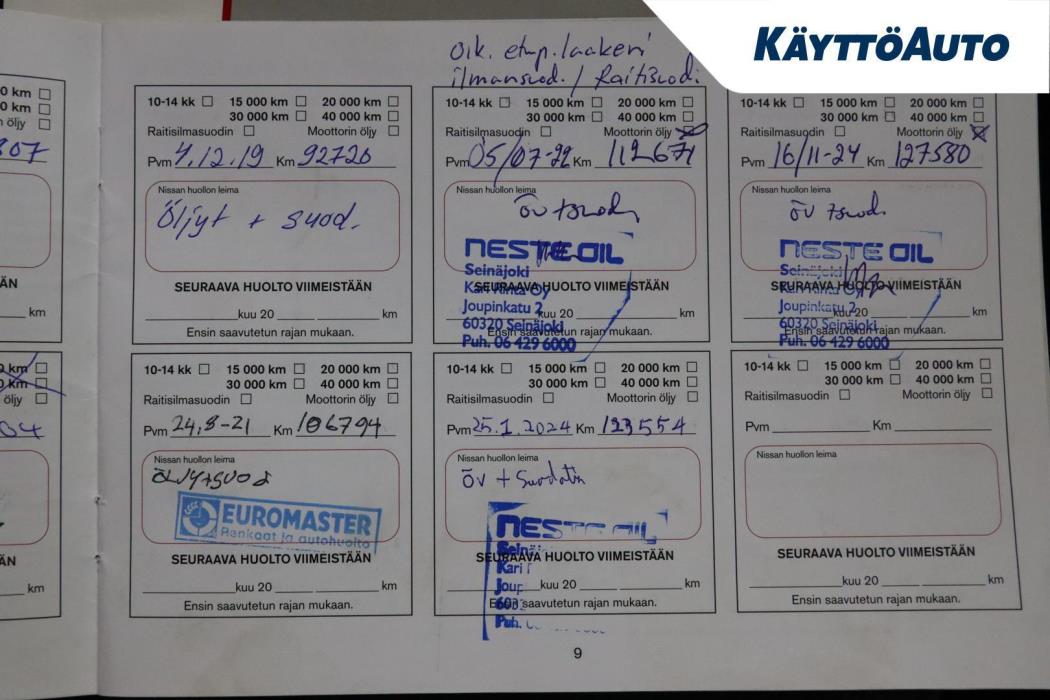 KÄYTTÖAUTO
Oik. etup. laakeri
ilmansuod. / Raitisuod.
0 km ☐
0 km ☐
öljy ☐
807
ÄN
km
km ☐
0 km ☐
öljy ☐
04
ÄN
km
10-14 kk ☐ 15 000 km ☐ 20 000 km ☐
30 000 km ☐ 40 000 km ☐
Raitisilmasuodin ☐ Moottorin öljy ☐
Pvm 4.12.19 Km 92720
Nissan huollon leima
Öljyt + suod.
SEURAAVA HUOLTO VIIMEISTÄÄN
kuu 20 km
Ensin saavutetun rajan mukaan.
10-14 kk ☐ 15 000 km ☐ 20 000 km ☐
30 000 km ☐ 40 000 km ☐
Raitisilmasuodin ☐ Moottorin öljy ☒
Pvm 05/07-22 Km 112671
Nissan huollon leima
öv + suod.
NESTE OIL
Seinäjoki
Kari Rinta Oy
SEURAAVA HUOLTO VIIMEISTÄÄN
Joupinkatu 2
kuu 20 km
60320 Seinäjoki
Ensin saavutetun rajan mukaan.
Puh. 06 429 6000
10-14 kk ☐ 15 000 km ☐ 20 000 km ☐
30 000 km ☐ 40 000 km ☐
Raitisilmasuodin ☐ Moottorin öljy ☒
Pvm 16/11-24 Km 127580
Nissan huollon leima
öv + suod.
NESTE OIL
Seinäjoki
Kari Rinta Oy
SEURAAVA HUOLTO VIIMEISTÄÄN
Joupinkatu 2
kuu 20 km
60320 Seinäjoki
Ensin saavutetun rajan mukaan.
Puh. 06 429 6000
10-14 kk ☐ 15 000 km ☐ 20 000 km ☐
30 000 km ☐ 40 000 km ☐
Raitisilmasuodin ☐ Moottorin öljy ☐
Pvm 24,8-21 Km 106794
Nissan huollon leima
ÖLJY+SUOD
EUROMASTER
Renkaat ja autohuolto
SEURAAVA HUOLTO VIIMEISTÄÄN
kuu 20 km
Ensin saavutetun rajan mukaan.
10-14 kk ☐ 15 000 km ☐ 20 000 km ☐
30 000 km ☐ 40 000 km ☐
Raitisilmasuodin ☐ Moottorin öljy ☐
Pvm 25.1.2024 Km 123554
Nissan huollon leima
öv + Suodatin
NESTE OIL
Seinä
SEURAAVA HUOLTO VIIMEISTÄÄN
Kari
Joup
kuu 20 km
603
Ensin saavutetun rajan mukaan.
Puh.
10-14 kk ☐ 15 000 km ☐ 20 000 km ☐
30 000 km ☐ 40 000 km ☐
Raitisilmasuodin ☐ Moottorin öljy ☐
Pvm Km
Nissan huollon leima
SEURAAVA HUOLTO VIIMEISTÄÄN
kuu 20 km
Ensin saavutetun rajan mukaan.
9